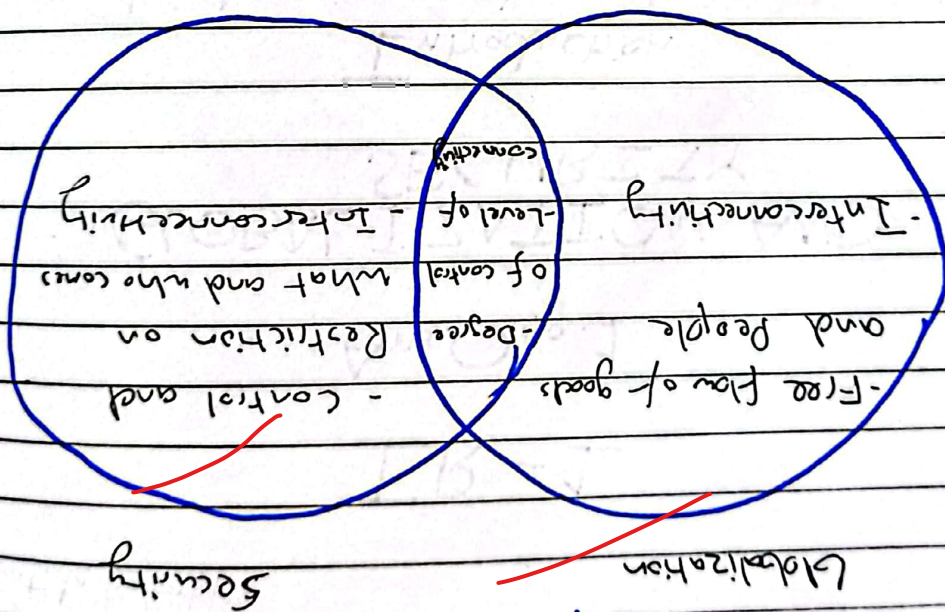 Globalization
Security
- Free flow of goods
and People
- Interconnectivity
- Degree
of control
- Level of
connectivity
- Control and
Restriction on
what and who comes
- Interconnectivity